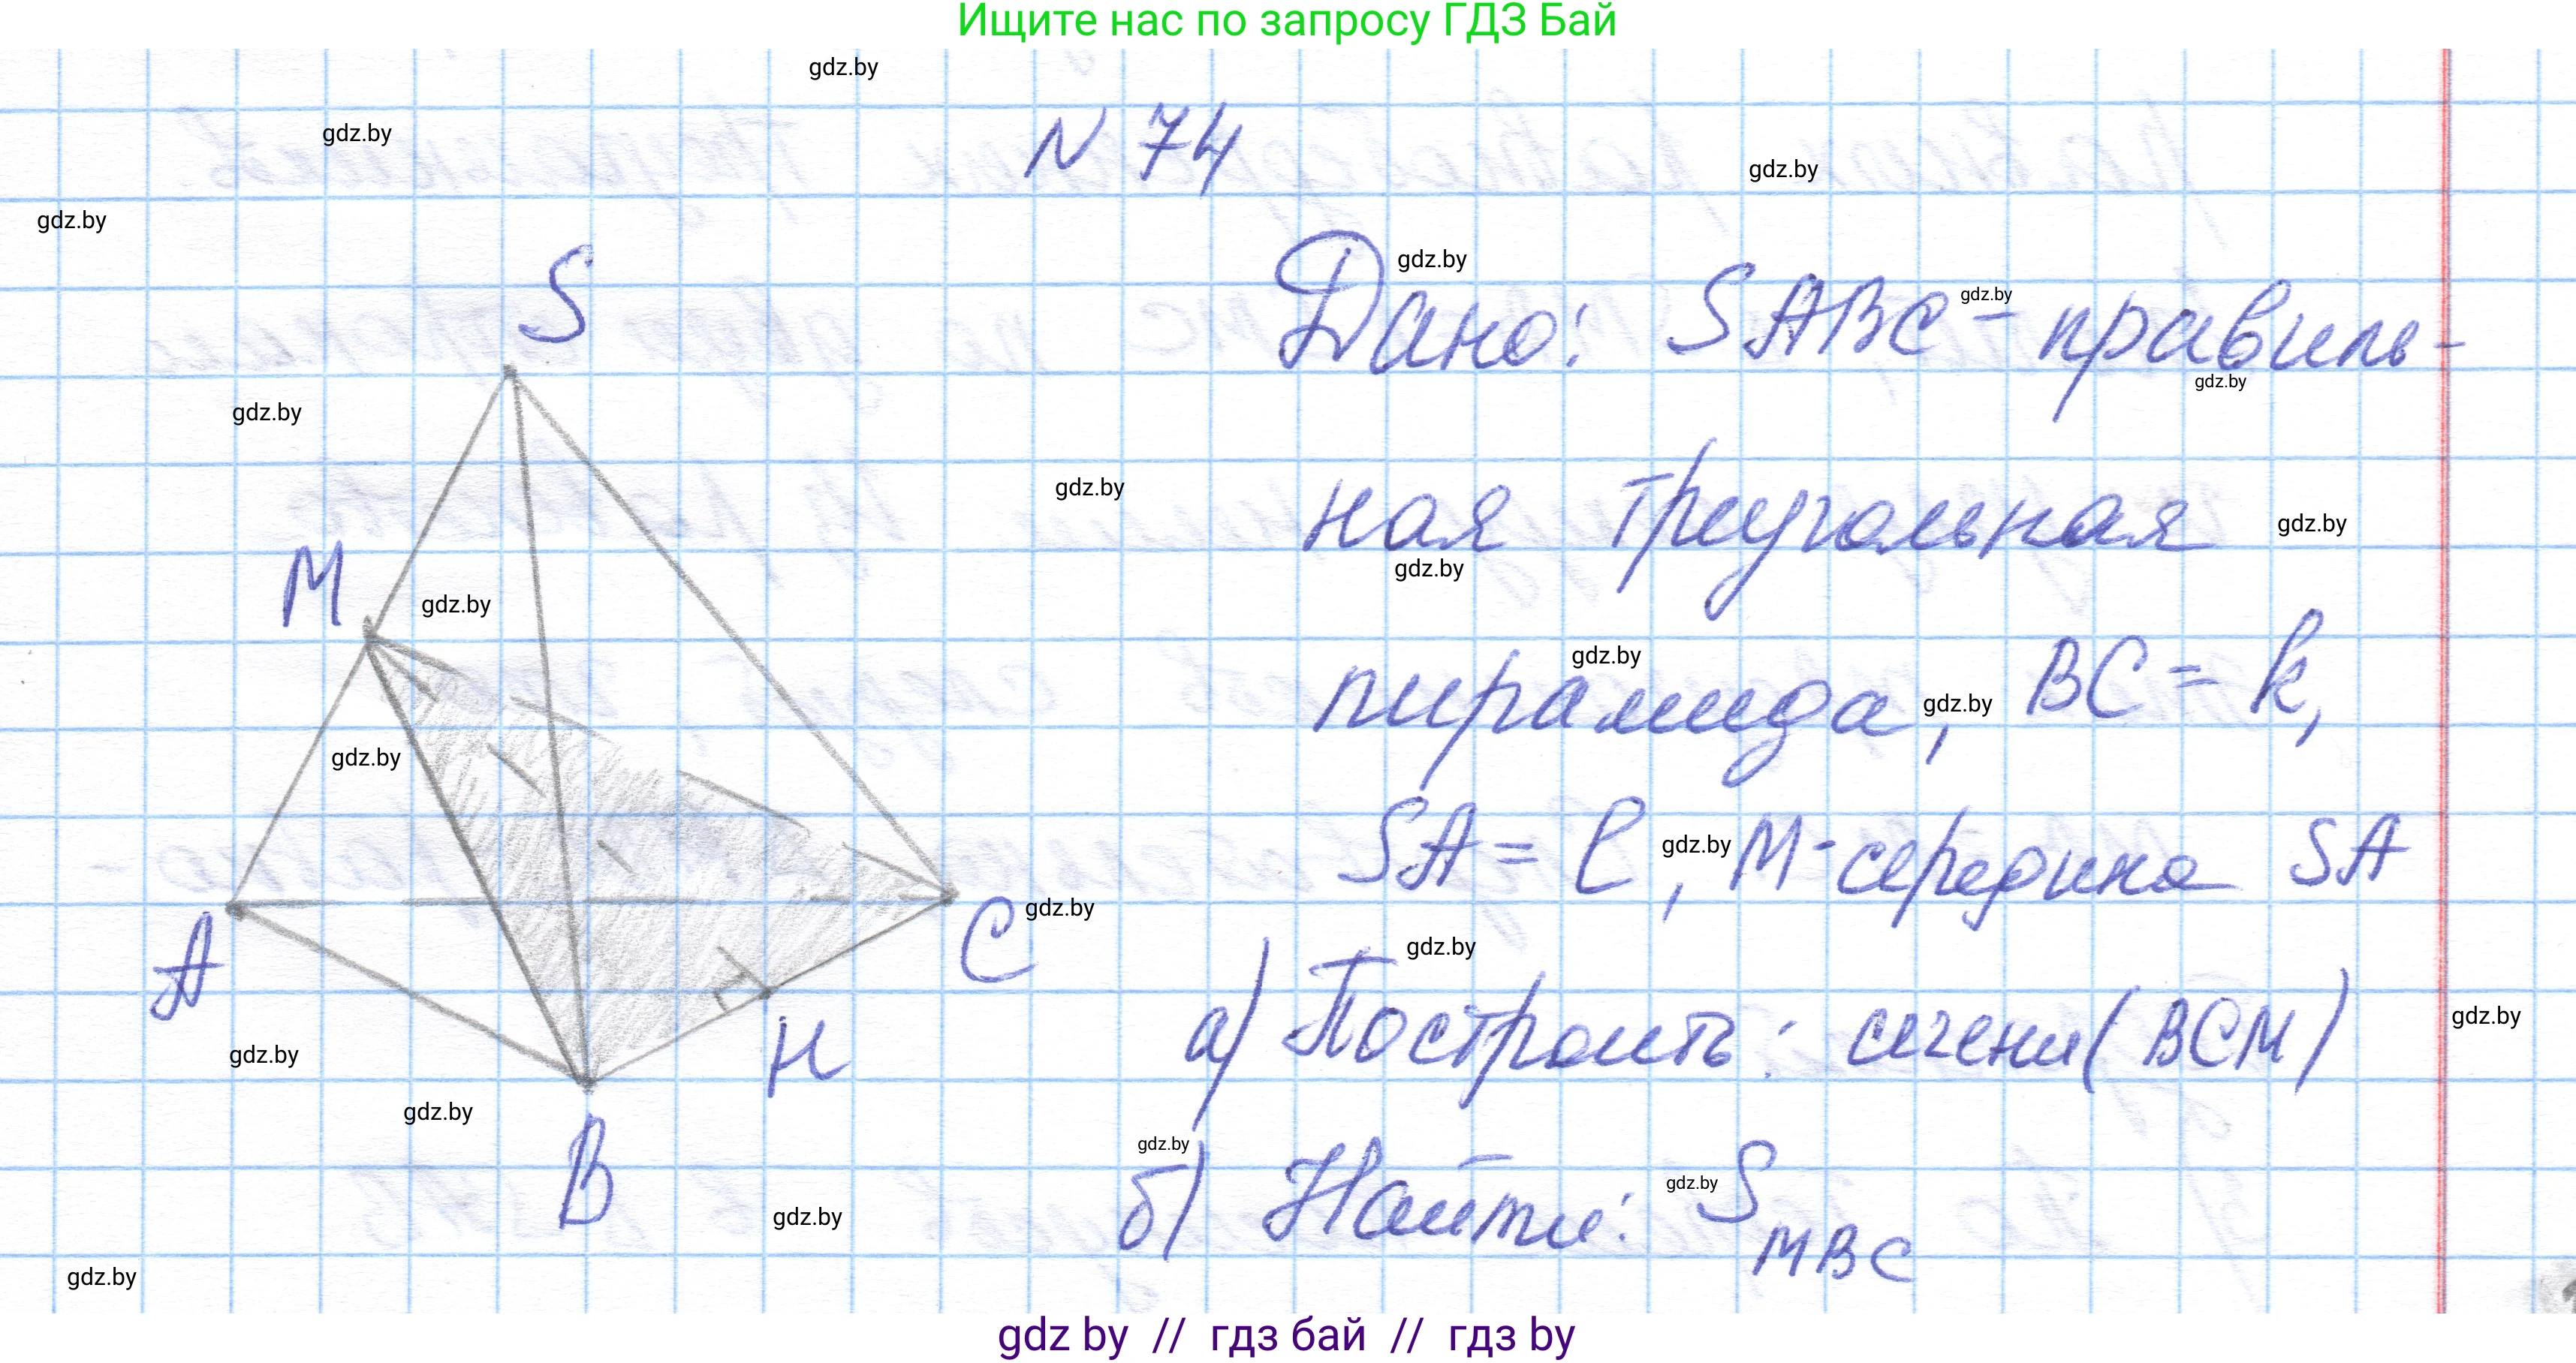 Ищите нас по запросу ГДЗ Бай
gdz.by
gdz.by
N 74
gdz.by
gdz.by
S
gdz.by
Дано: SABC - правиль-
gdz.by
gdz.by
gdz.by
gdz.by
ная треугольная
gdz.by
gdz.by
M
gdz.by
gdz.by
пирамида, BC = k,
gdz.by
gdz.by
SA = l, M - середина SA
gdz.by
A
C
gdz.by
gdz.by
а) Построить: сечени (BCM)
gdz.by
H
gdz.by
gdz.by
B
gdz.by
б) Найти: S MBC
gdz.by
gdz.by
gdz.by
gdz by // гдз бай // гдз by